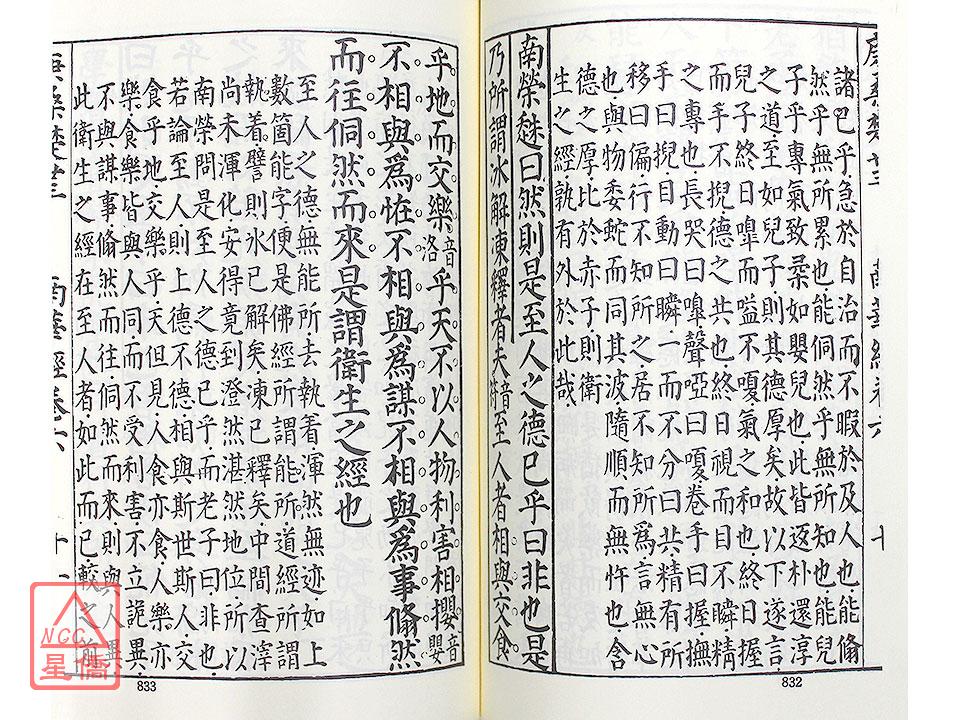 諸巴乎急於自治而不暇於及人也能翛
然乎無所累也能侗然乎無所知也能兒
子乎專氣致柔如嬰兒也此皆返朴還淳
之道至如兒子則其德厚矣故以下遂言
兒子終日嘷而嗌不嗄氣之和也終日握
而手不掜德之共也終日視而目不瞬精
之專也長哭曰嘷聲啞曰嗄卷手曰握撫
手曰掜目動曰瞬一而不分曰共精有所
移曰偏行不知所之居不知所為言無心
也與物委蛇而同其波隨順而無忤也含
德之厚比於赤子則衛
生之經孰有外於此哉
南榮趎曰然則是至人之德已乎曰非也是
乃所謂冰解凍釋者夫音符至人者相與交食
832
乎地而交樂音洛乎天不以人物利害相攖音嬰
不相與為怪不相與為謀不相與為事翛然
而往侗然而來是謂衛生之經也
至人之德無能所去執着渾然無迹如上
數箇能字便是佛經所謂能所道經所謂
執着譬則冰已解矣凍已釋矣中間查滓
尚未渾化安得竟到澄然湛然地位所以
南榮問是至人之德已乎而老子曰非也
若論至人則上德不德相與斯世斯人交
食乎地交樂乎天但見人食亦食人樂亦
樂食樂皆與人同而不受利害不立詭異
不與謀事翛然而往侗然而來則與人異
此衛生之經在至人者如此而已較之前
南華經卷六
833
NCC
星僑